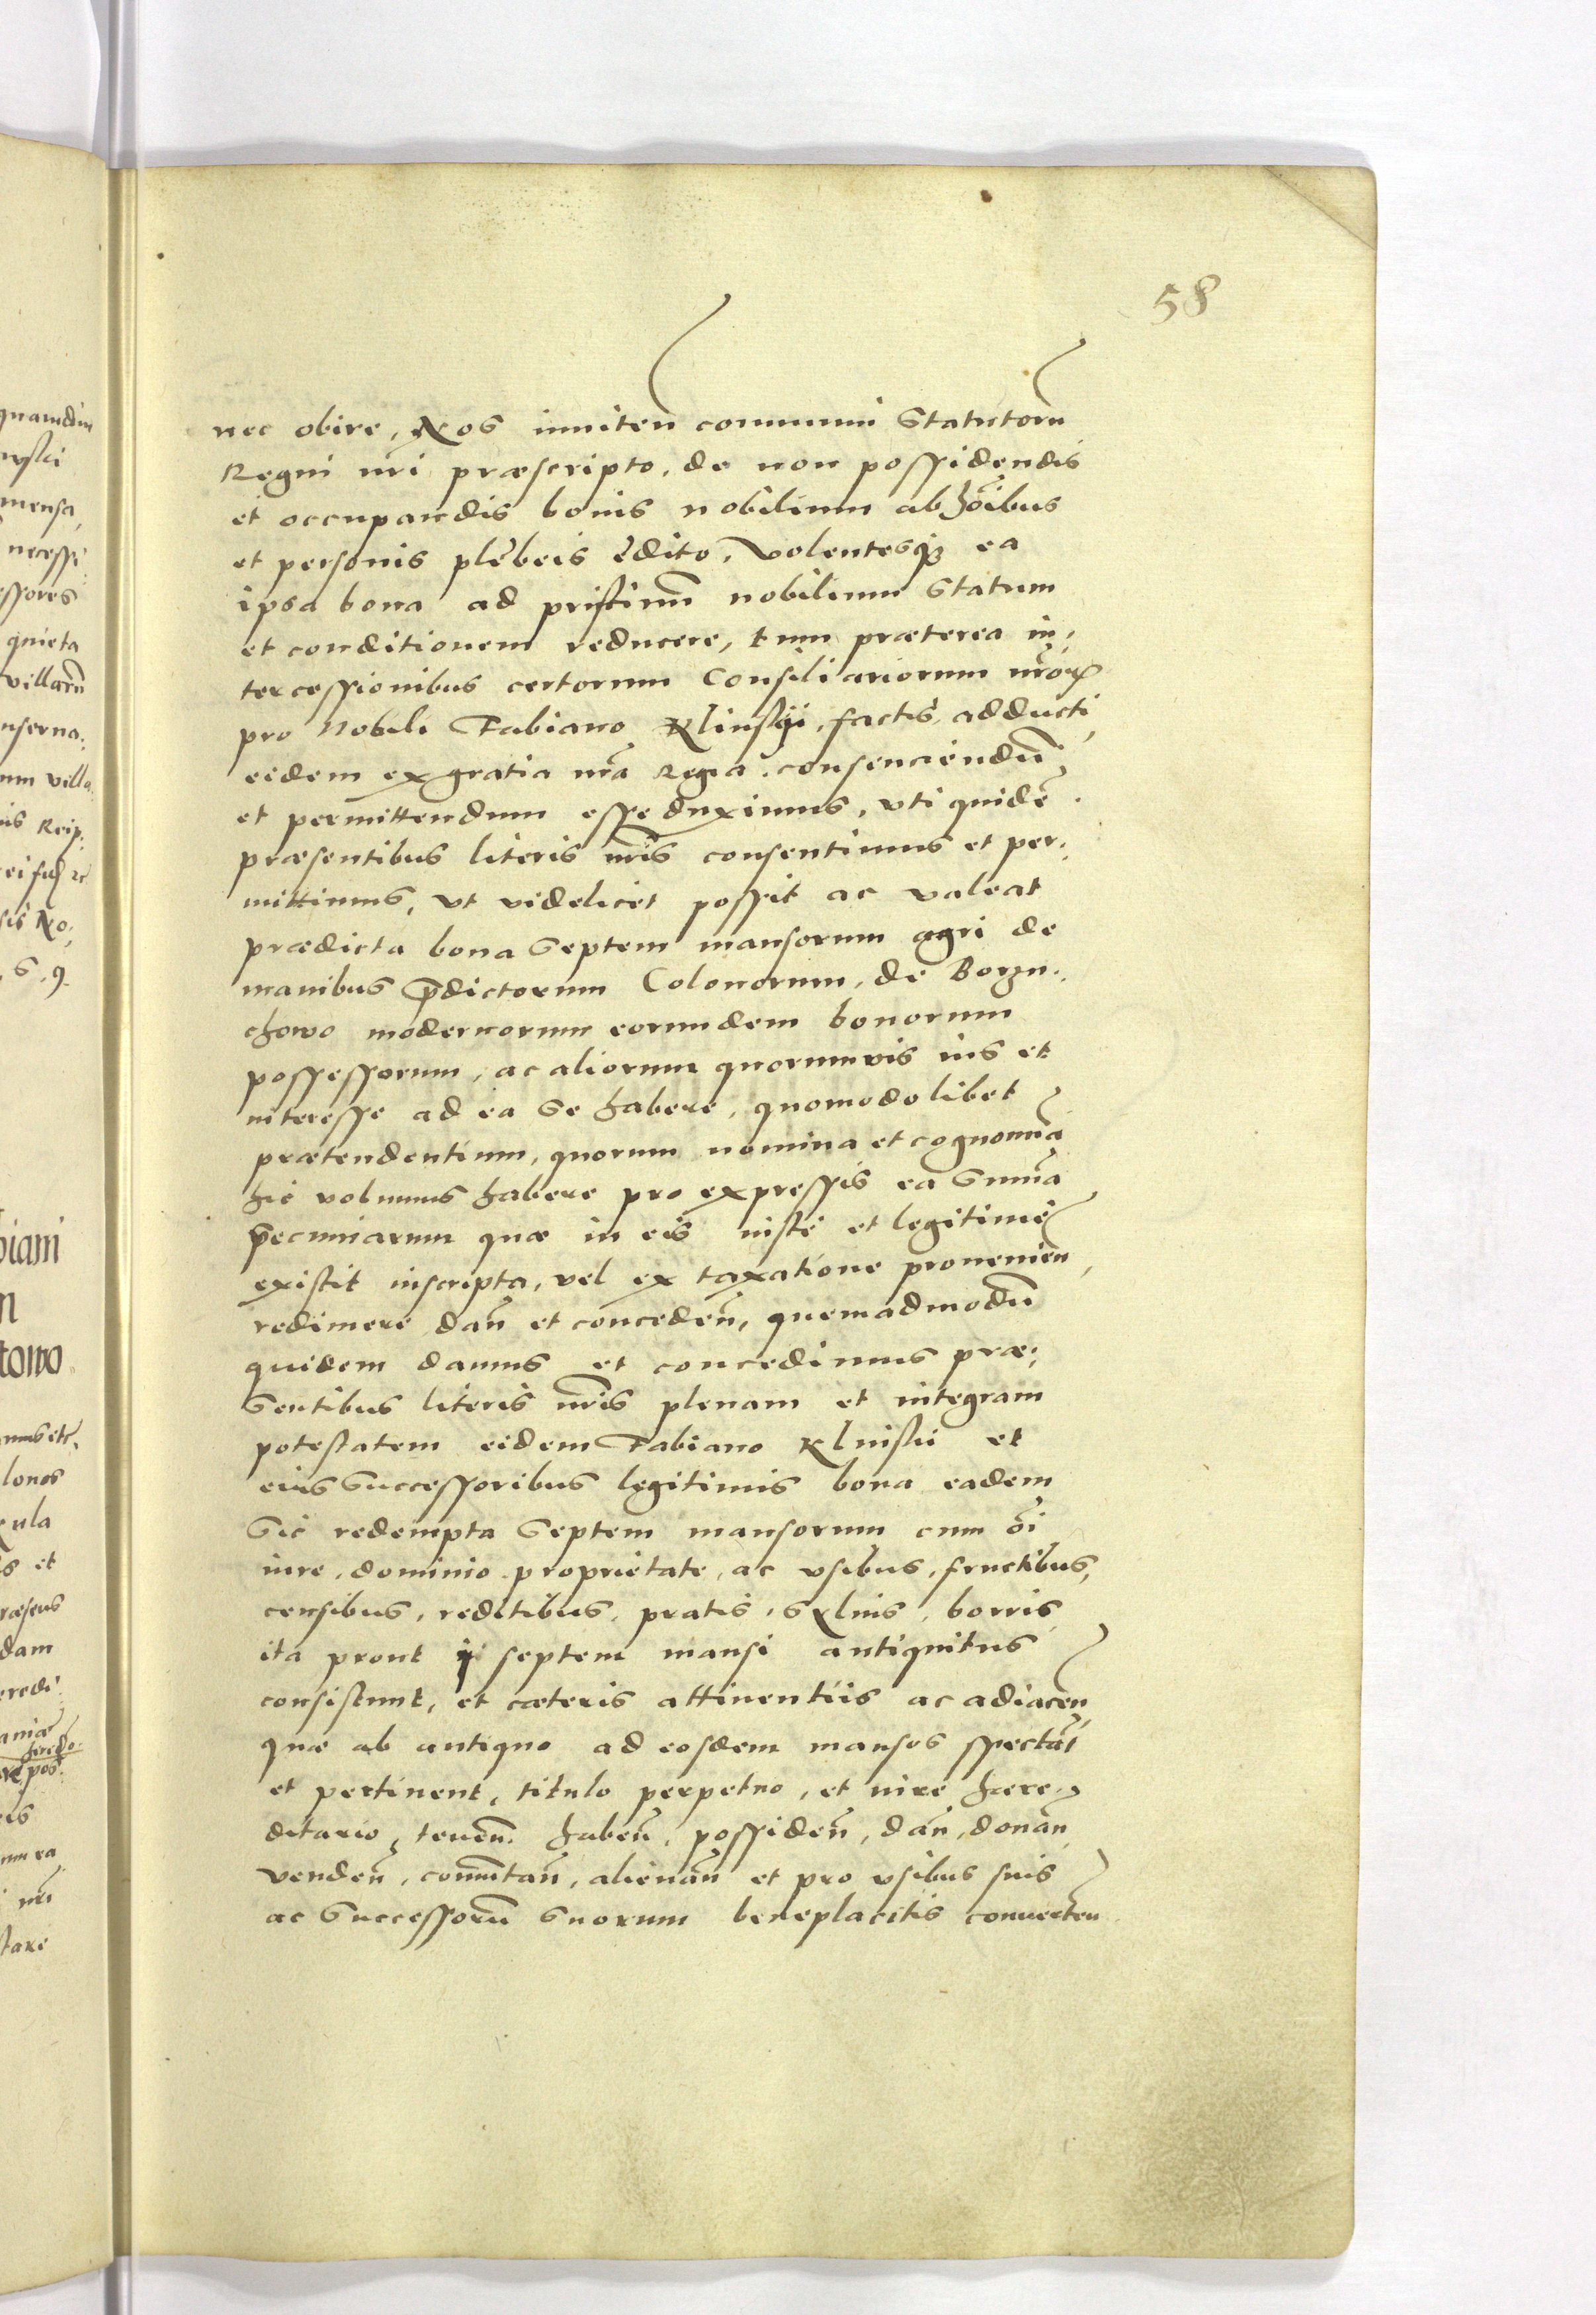 58
nec obire, Nos inniten̄ communi Statutorū
Regni nr̄i præscripto, de non possidendis
et occupandis bonis nobilium ab hōibus
et personis plebeis edito, volentesq3 ea
ipsa bona ad pristinū nobilium Statum
et conditionem reducere, tum præterea in,
tercessionibus certorum Consiliariorum nr̄oꝝ
pro Nobili Fabiano Klinskji, factis, adducti,
eidem ex gratia nr̄a Regia consenciendū
et permittendum esse duximus, vti quidē
præsentibus literis nr̄is consentimus et per,
mittimus, vt videlicet possit ac valeat
prædicta bona Septem mansorum agri de
manibus p̄dictorum Colonorum, de Borzu,
chowo modernorum eorundem bonorum
possessorum, ac aliorum quorumvis ius et
interesse ad ea se habere, quomodolibet
prætendentium, quorum nomina et cognomīa
hic volumus habere pro expressis ea Sum̄a
pecuniarum quæ in eis iuste et legitime
existit inscripta, vel ex taxatione prouenien̄,
redimere dan̄ et conceden̄, quemadmodū
quidem damus et concedimus præ,
Sentibus literis nr̄is plenam et integram
potestatem eidem Fabiano Klinskii et
eius Successoribus legitimis bona eadem
Sic redempta Septem mansorum cum ōi
iure, dominio proprietate, ac vsibus, fructibus,
censibus, reditibus, pratis, syluis, borris,
ita prout ij septem mansi antiquitus
consistunt, et cæteris attinentiis ac adiacen̄,
quæ ab antiquo ad eosdem mansos spectāt
et pertinent, titulo perpetuo, et iure hære,
ditario, tenen̄ haben̄, possiden̄, dan̄, donan̄
venden̄, com̄utan̄, alienan̄ et pro vsibus suis
ac Successorū Suorum beneplacitis conuerten̄